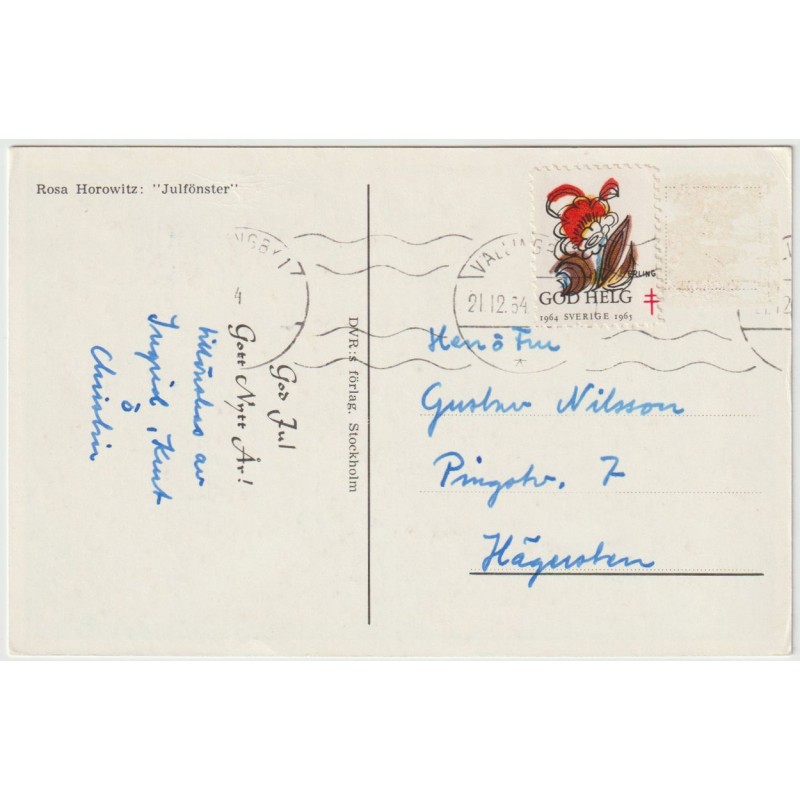 Rosa Horowitz: "Julfönster"
VÄLLINGBY 1
21.12.64
ERLING
GOD HELG
1964 SVERIGE 1965
God Jul
Gott Nytt År!
tillönskas av
Ingrid, Kent
o
Christin
DVR:s förlag, Stockholm
Herr o Fru
Gustav Nilsson
Pingstv. 7
Hägersten